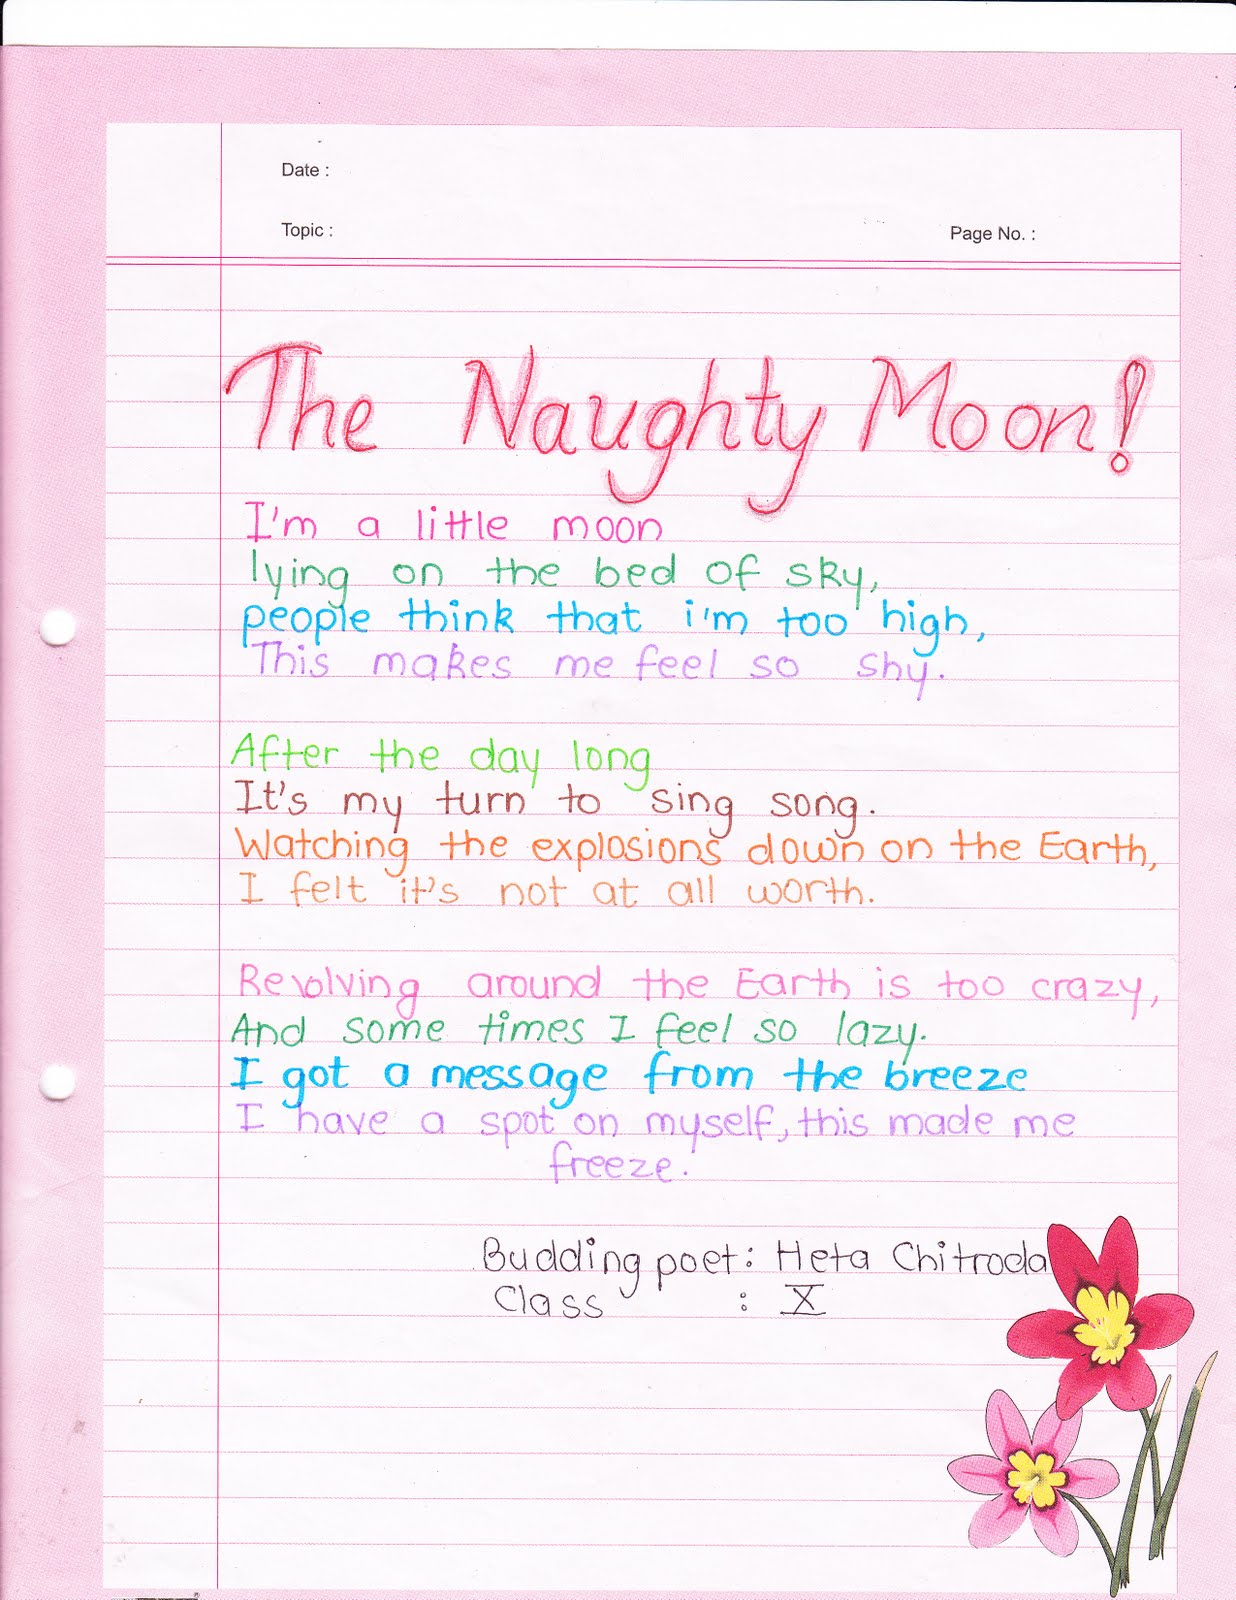 Date :
Topic :
Page No. :
The Naughty Moon!
I'm a little moon
lying on the bed of sky,
people think that i'm too high,
This makes me feel so shy.
After the day long
It's my turn to sing song.
Watching the explosions down on the Earth,
I felt it's not at all worth.
Revolving around the Earth is too crazy,
And some times I feel so lazy.
I got a message from the breeze
I have a spot on myself, this made me
freeze.
Budding poet: Heta Chitroda
Class : X